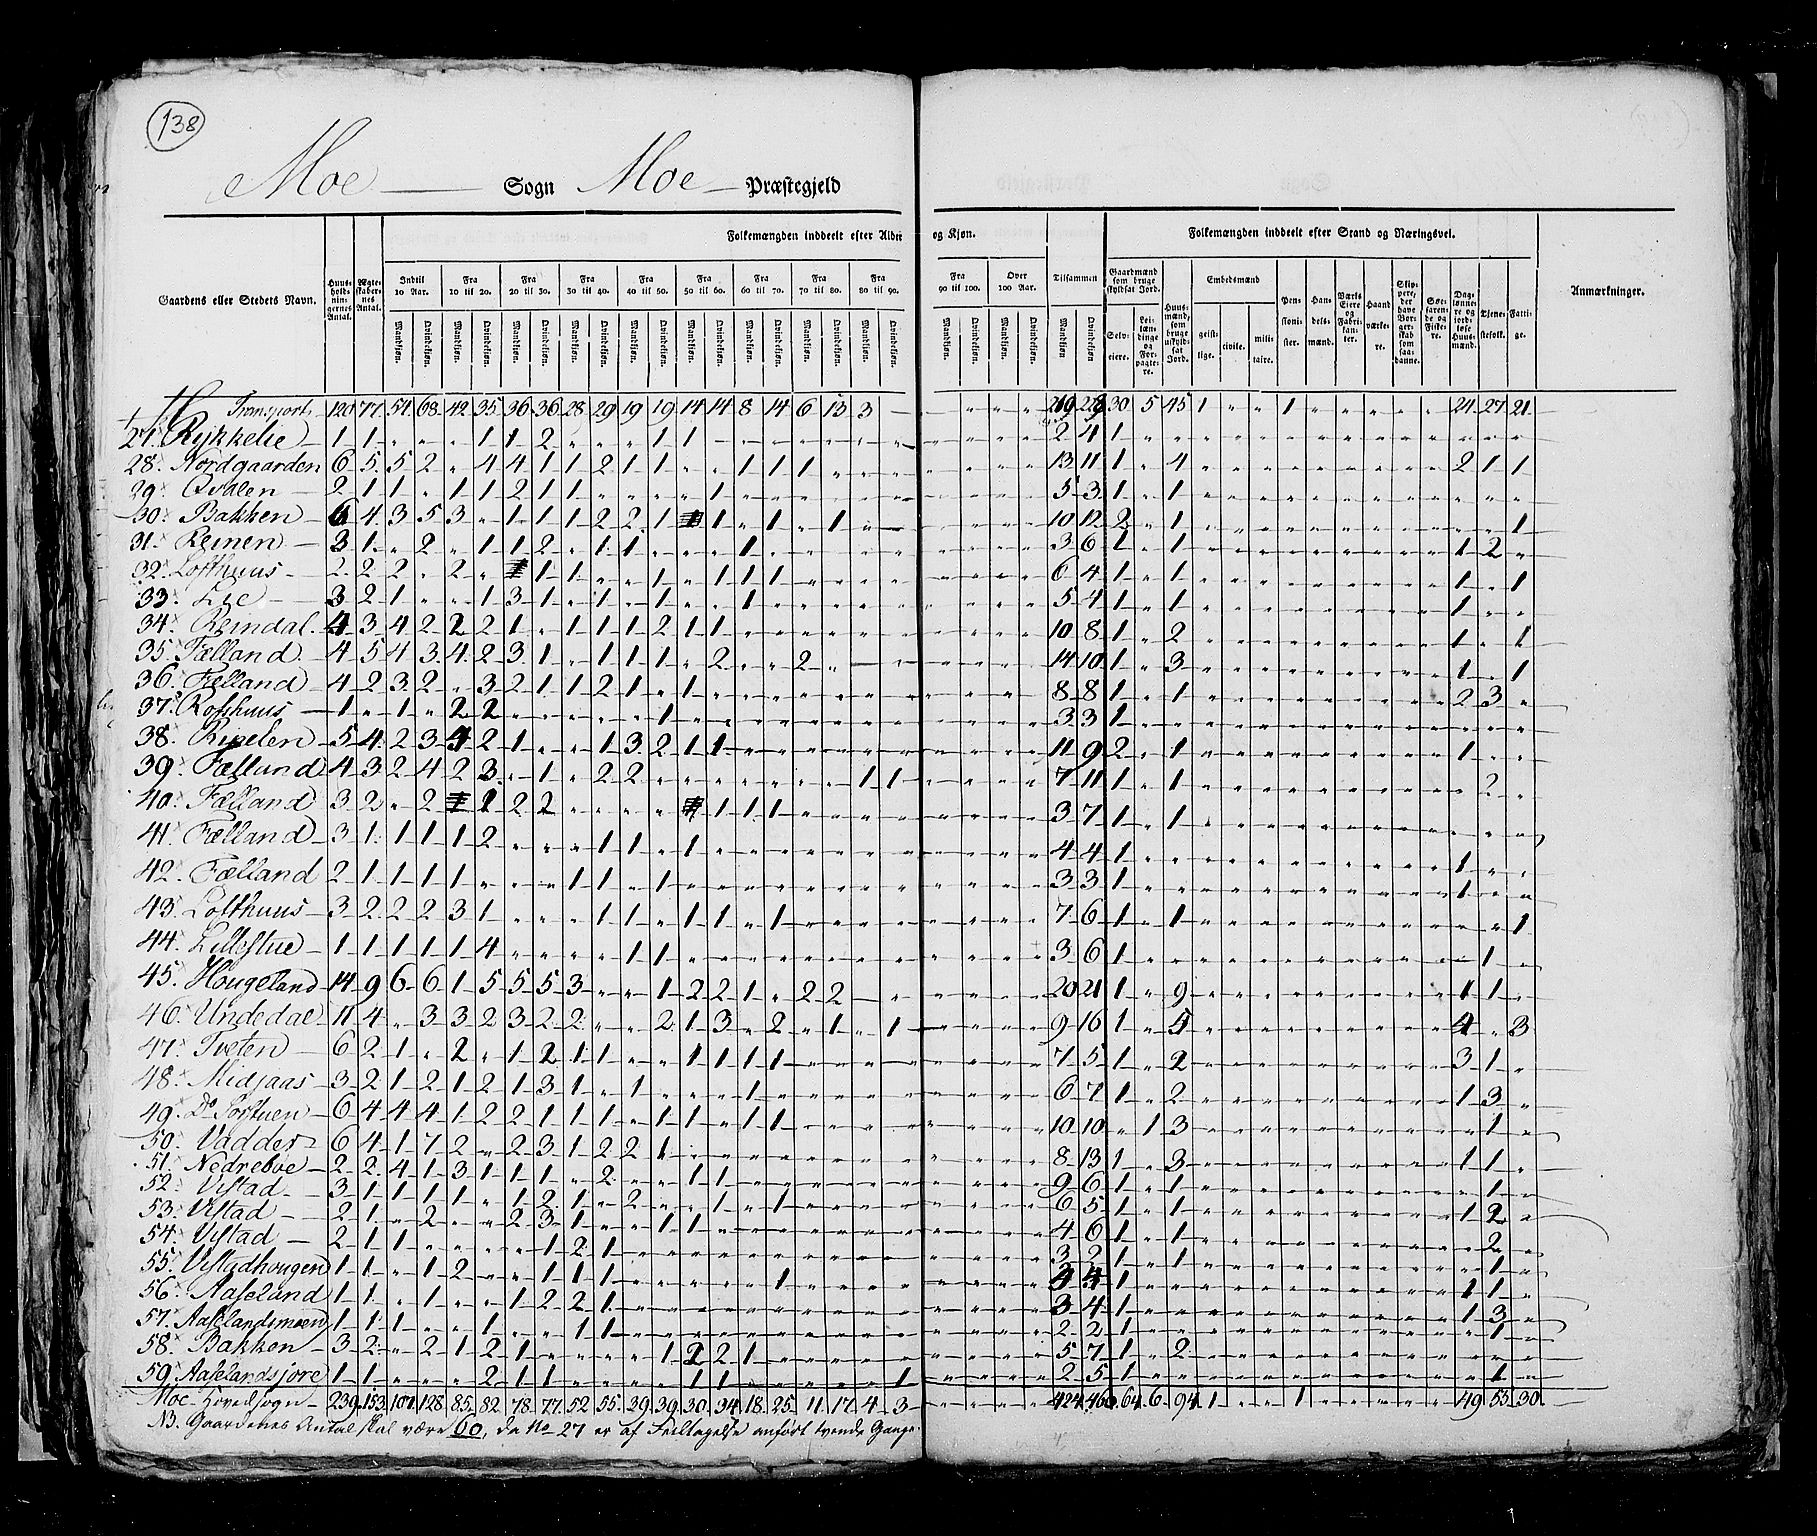 138
Moe Sogn Moe Præstegjeld
Folkemængden inddeelt efter Alder og Kjøn.
Folkemængden inddeelt efter Stand og Næringsvei.
Gaardens eller Stedets Navn.
Huusholdningernes Antal.
Ægteskabernes Antal.
Indtil 10 Aar.
Fra 10 til 20.
Fra 20 til 30.
Fra 30 til 40.
Fra 40 til 50.
Fra 50 til 60.
Fra 60 til 70.
Fra 70 til 80.
Fra 80 til 90.
Fra 90 til 100.
Over 100 Aar.
Tilsammen
Mandkjøn. Qvindekjøn.
Gaardmænd som bruge skyldsat Jord.
Selveiere.
Leilændinge og Forpagtere.
Huusmænd, som bruge uskyldsat Jord.
Embedsmænd
geistlige. civile. militaire.
Pensionister.
Handelsmænd.
Værks Eiere og Fabrikanter.
Haandværkere.
Skippere, der have Borgerskab som saadanne.
Søefarende og Fiskere.
Dagslønnere og jordløse Huusmænd.
Tjenestefolk.
Fattige.
Anmærkninger.
Transport 120 77 54 68 42 35 36 36 28 29 19 19 14 14 8 14 6 13 3 30 5 45 1 1 24 27 21
27. Rykkelie 1 1 1 1 2 1 1 2 4 1
28. Nordgaarden 6 5 5 2 4 4 1 1 2 1 1 1 1 1 13 11 1 4 2 1 1
29. Qvalen 2 1 1 1 1 2 1 1 1 5 3 1 1
30. Bakken 6 4 3 5 3 1 1 1 2 2 1 1 1 1 10 12 2 1 1
31. Reinen 3 1 2 1 1 2 1 1 1 3 6 1 1 1 2
32. Lofthuus 2 2 2 2 1 1 1 1 1 1 6 4 1 1 1 1
33. Lie 3 2 1 1 3 1 1 1 1 5 4 1 1 1
34. Reindal 4 3 4 2 2 2 1 1 1 1 2 1 1 10 8 1 2 1 1
35. Fælland 4 5 4 3 4 2 3 1 1 1 1 2 2 14 10 1 3 1 1
36. Fælland 4 2 3 2 3 2 1 1 2 1 1 8 8 1 1 2 3
37. Kosthuus 1 1 2 2 1 3 3 1
38. 5 4 2 3 4 2 1 1 3 2 1 1 11 9 2 1 1
39. Fælland 4 3 2 4 2 3 1 2 2 1 1 7 11 1 1 2
40. Fælland 3 2 2 1 2 2 1 1 1 3 7 1 1
41. Fælland 3 1 1 1 1 2 1 1 1 4 4 1 1
42. Fælland 2 1 1 1 1 1 1 1 1 3 3 1 1
43. Lofthuus 3 2 2 2 3 1 1 1 1 1 1 7 6 1 1 1
44. Lillestue 1 1 1 1 1 4 1 1 3 6 1 1
45. Hougeland 14 9 6 6 1 5 5 5 3 1 2 2 1 2 2 20 21 1 9 1 1
46. Undedal 11 4 3 3 2 3 2 2 2 1 3 2 1 1 9 16 1 5 4 3
47. Tveten 6 2 1 2 1 2 1 1 1 1 1 1 7 5 1 2 3 1
48. Midjaas 3 2 1 2 1 2 1 3 1 1 1 6 7 1 2 1 3
49. Do Sørstuen 6 4 4 4 1 2 2 1 1 1 1 1 1 1 1 10 10 1 3 1
50. Vadder 6 4 1 7 2 2 3 1 2 2 1 8 13 1 3 1 1
51. Nedreboe 2 2 4 1 3 1 1 1 2 1 1 9 6 1 1 1
52. Vistad 3 1 1 1 1 1 2 1 2 1 1 6 5 1 1 1 2
53. Vistad 2 1 2 2 3 1 1 1 4 6 1 1 2
54. Vistad 2 1 1 1 2 1 3 2 1 1 1
55. Vistadhougen 1 1 1 2 1 1 1 1 3 4 1 1 1
56. Aaseland 1 1 1 1 2 2 1 3 4 1 1 3
57. Aaselandsmoen 1 1 1 1 1 1 2 2 1 1
58. Bakken 3 2 2 1 2 1 1 2 2 1 5 7 1 2
59. Aaselandsjore 1 1 2 1 1 1 1 1 2 5 1 1
Moe Hovedsogn 239 153 107 128 85 82 78 77 52 55 39 39 30 34 18 25 11 17 4 3 424 460 64 6 94 1 1 49 55 30
NB. Gaardenes Antal skal være 60, da No 27 er af Feiltagelse anført tvende Gange